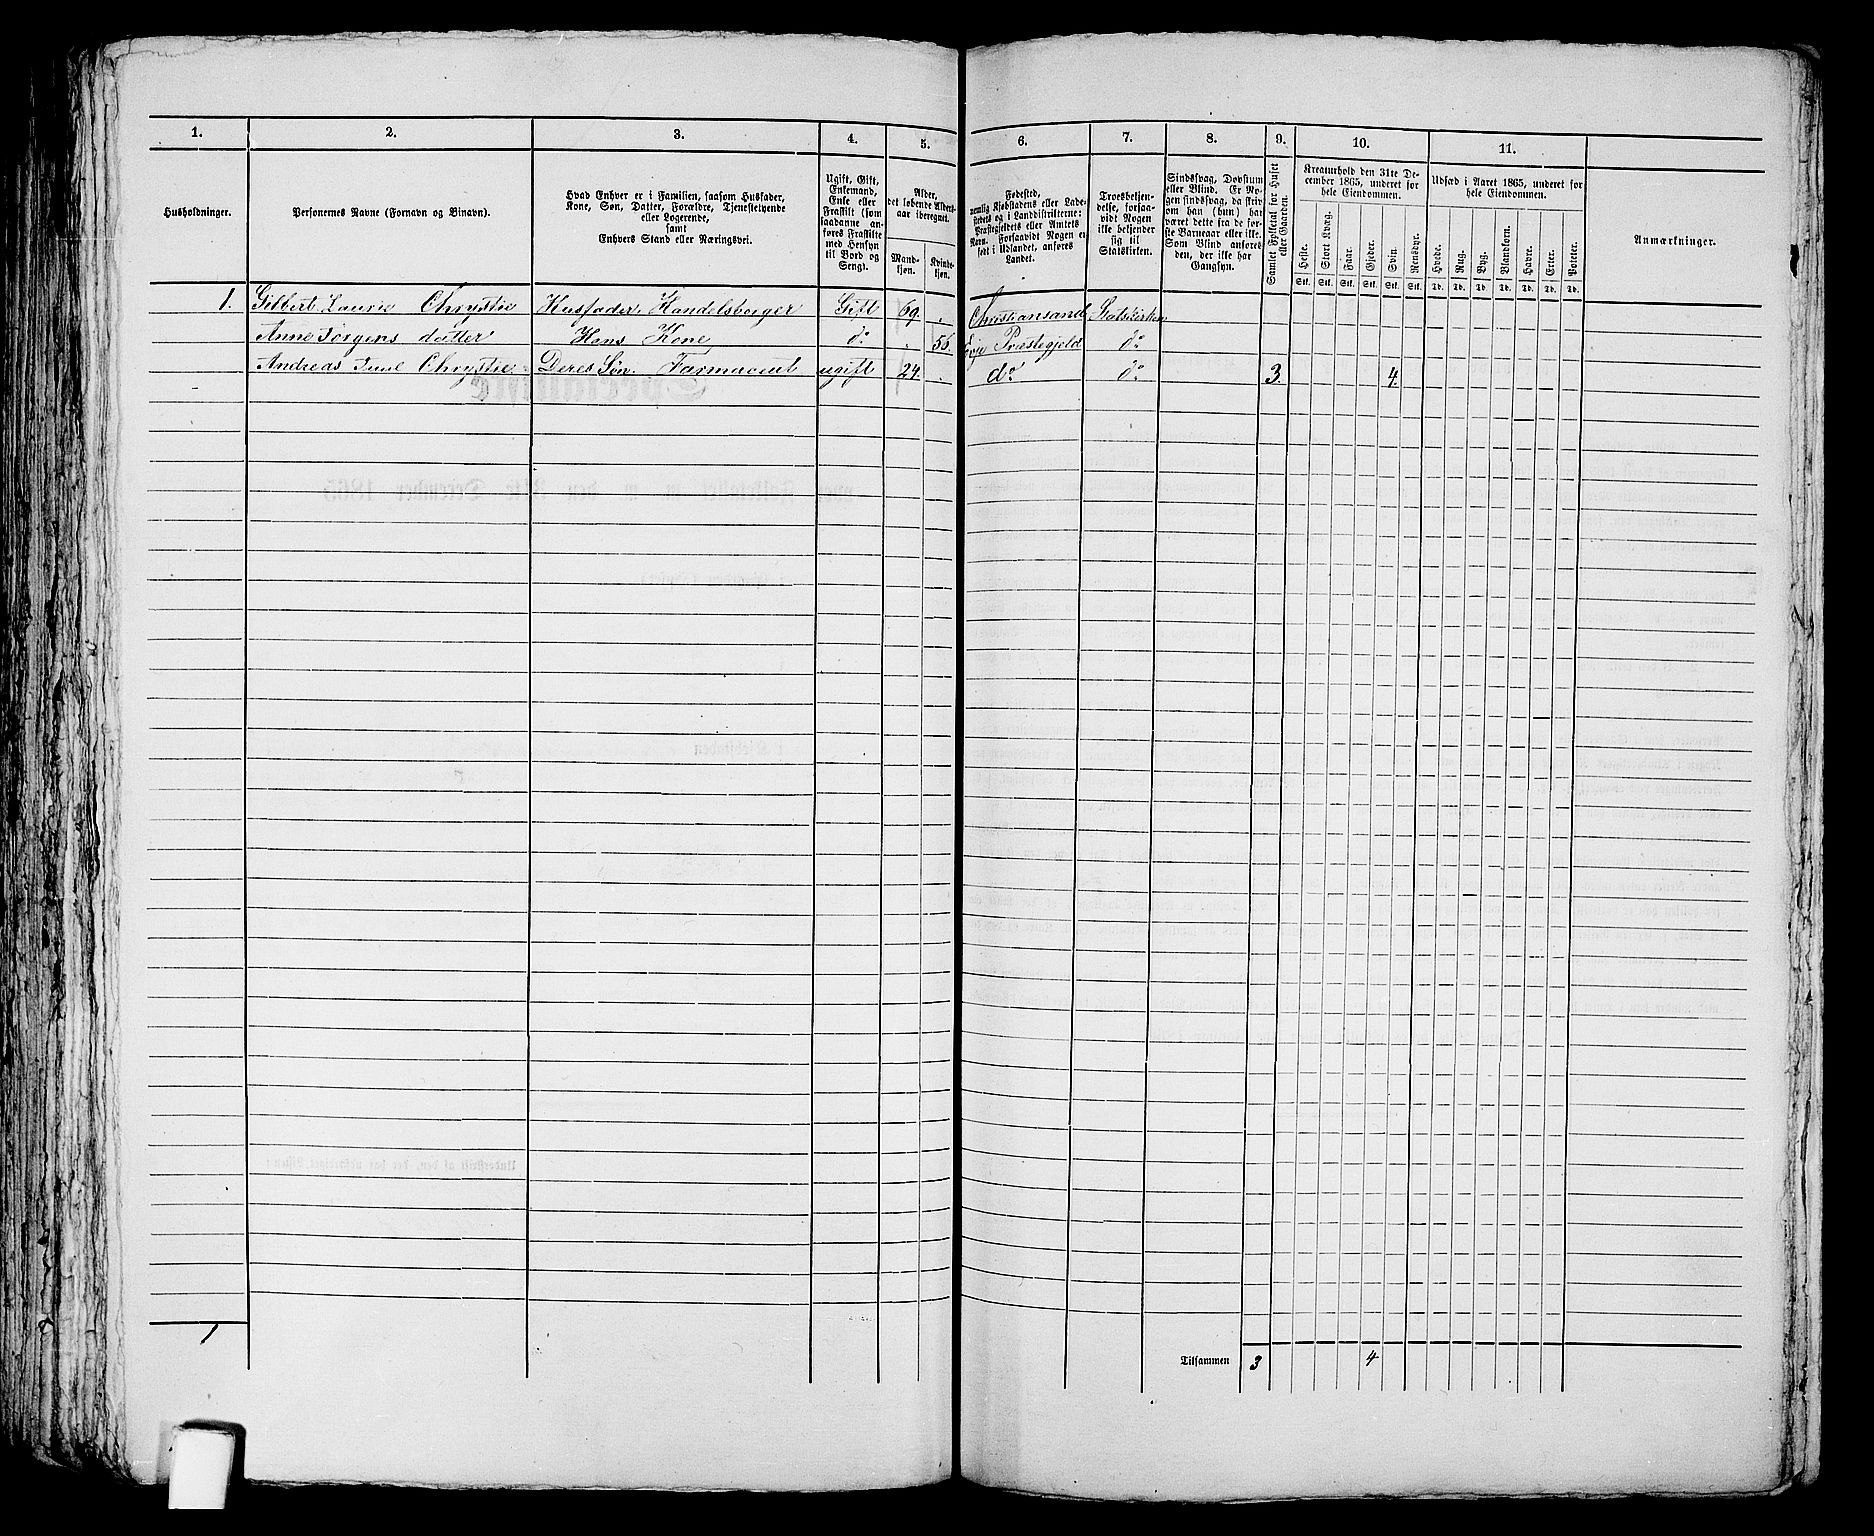 1. 2. 3. 4. 5. 6. 7. 8. 9. 10. 11.
Husholdninger.
Personernes Navne (Fornavn og Binavn).
Hvad Enhver er i Familien, saasom Husfader,
Kone, Søn, Datter, Forældre, Tjenestetyende
eller Logerende,
samt
Enhvers Stand eller Næringsvei.
Ugift, Gift,
Enkemand,
Enke eller
Fraskilt (som
saadanne an-
føres Fraskilte
med Hensyn
til Bord og
Seng).
Alder,
det løbende Alders-
aar iberegnet.
Mand-
kjøn.
Kvinde-
kjøn.
Fødested,
nemlig Kjøbstadens eller Lade-
stedets og i Landdistrikterne:
Præstegjeldets eller Amtets
Navn. Forsaavidt Nogen er
født i Udlandet, anføres
Landet.
Troesbekjen-
delse, forsaa-
vidt Nogen
ikke bekjender
sig til
Statskirken.
Sindssvag, Døvstum
eller Blind. Er No-
gen sindssvag, da skriv
om han (hun) har
været dette fra de før-
ste Barneaar eller ikke.
Som Blind anføres
den, der ikke har
Gangsyn.
Samlet Folketal for Huset
eller Gaarden.
Kreaturhold den 31te De-
cember 1865, underet for
hele Eiendommen.
Heste. Stort Kvæg. Faar. Gjeder. Svin. Rensdyr.
Stk. Stk. Stk. Stk. Stk. Stk.
Udsæd i Aaret 1865, underet for
hele Eiendommen.
Hvede. Rug. Byg. Blandkorn. Havre. Erter. Poteter.
Td. Td. Td. Td. Td. Td. Td.
Anmærkninger.
1. Gilbert Laurie Chrystie Husfader. Handelsborger Gift 69 . Christiansand Statskirken
Anne Jørgens datter Hans Kone do . 56. Evje Præstegjeld do
Andreas Juul Chrystie Deres Søn. Farmaceut ugift 24. . do do 3. 4.
1
Tilsammen 3 4